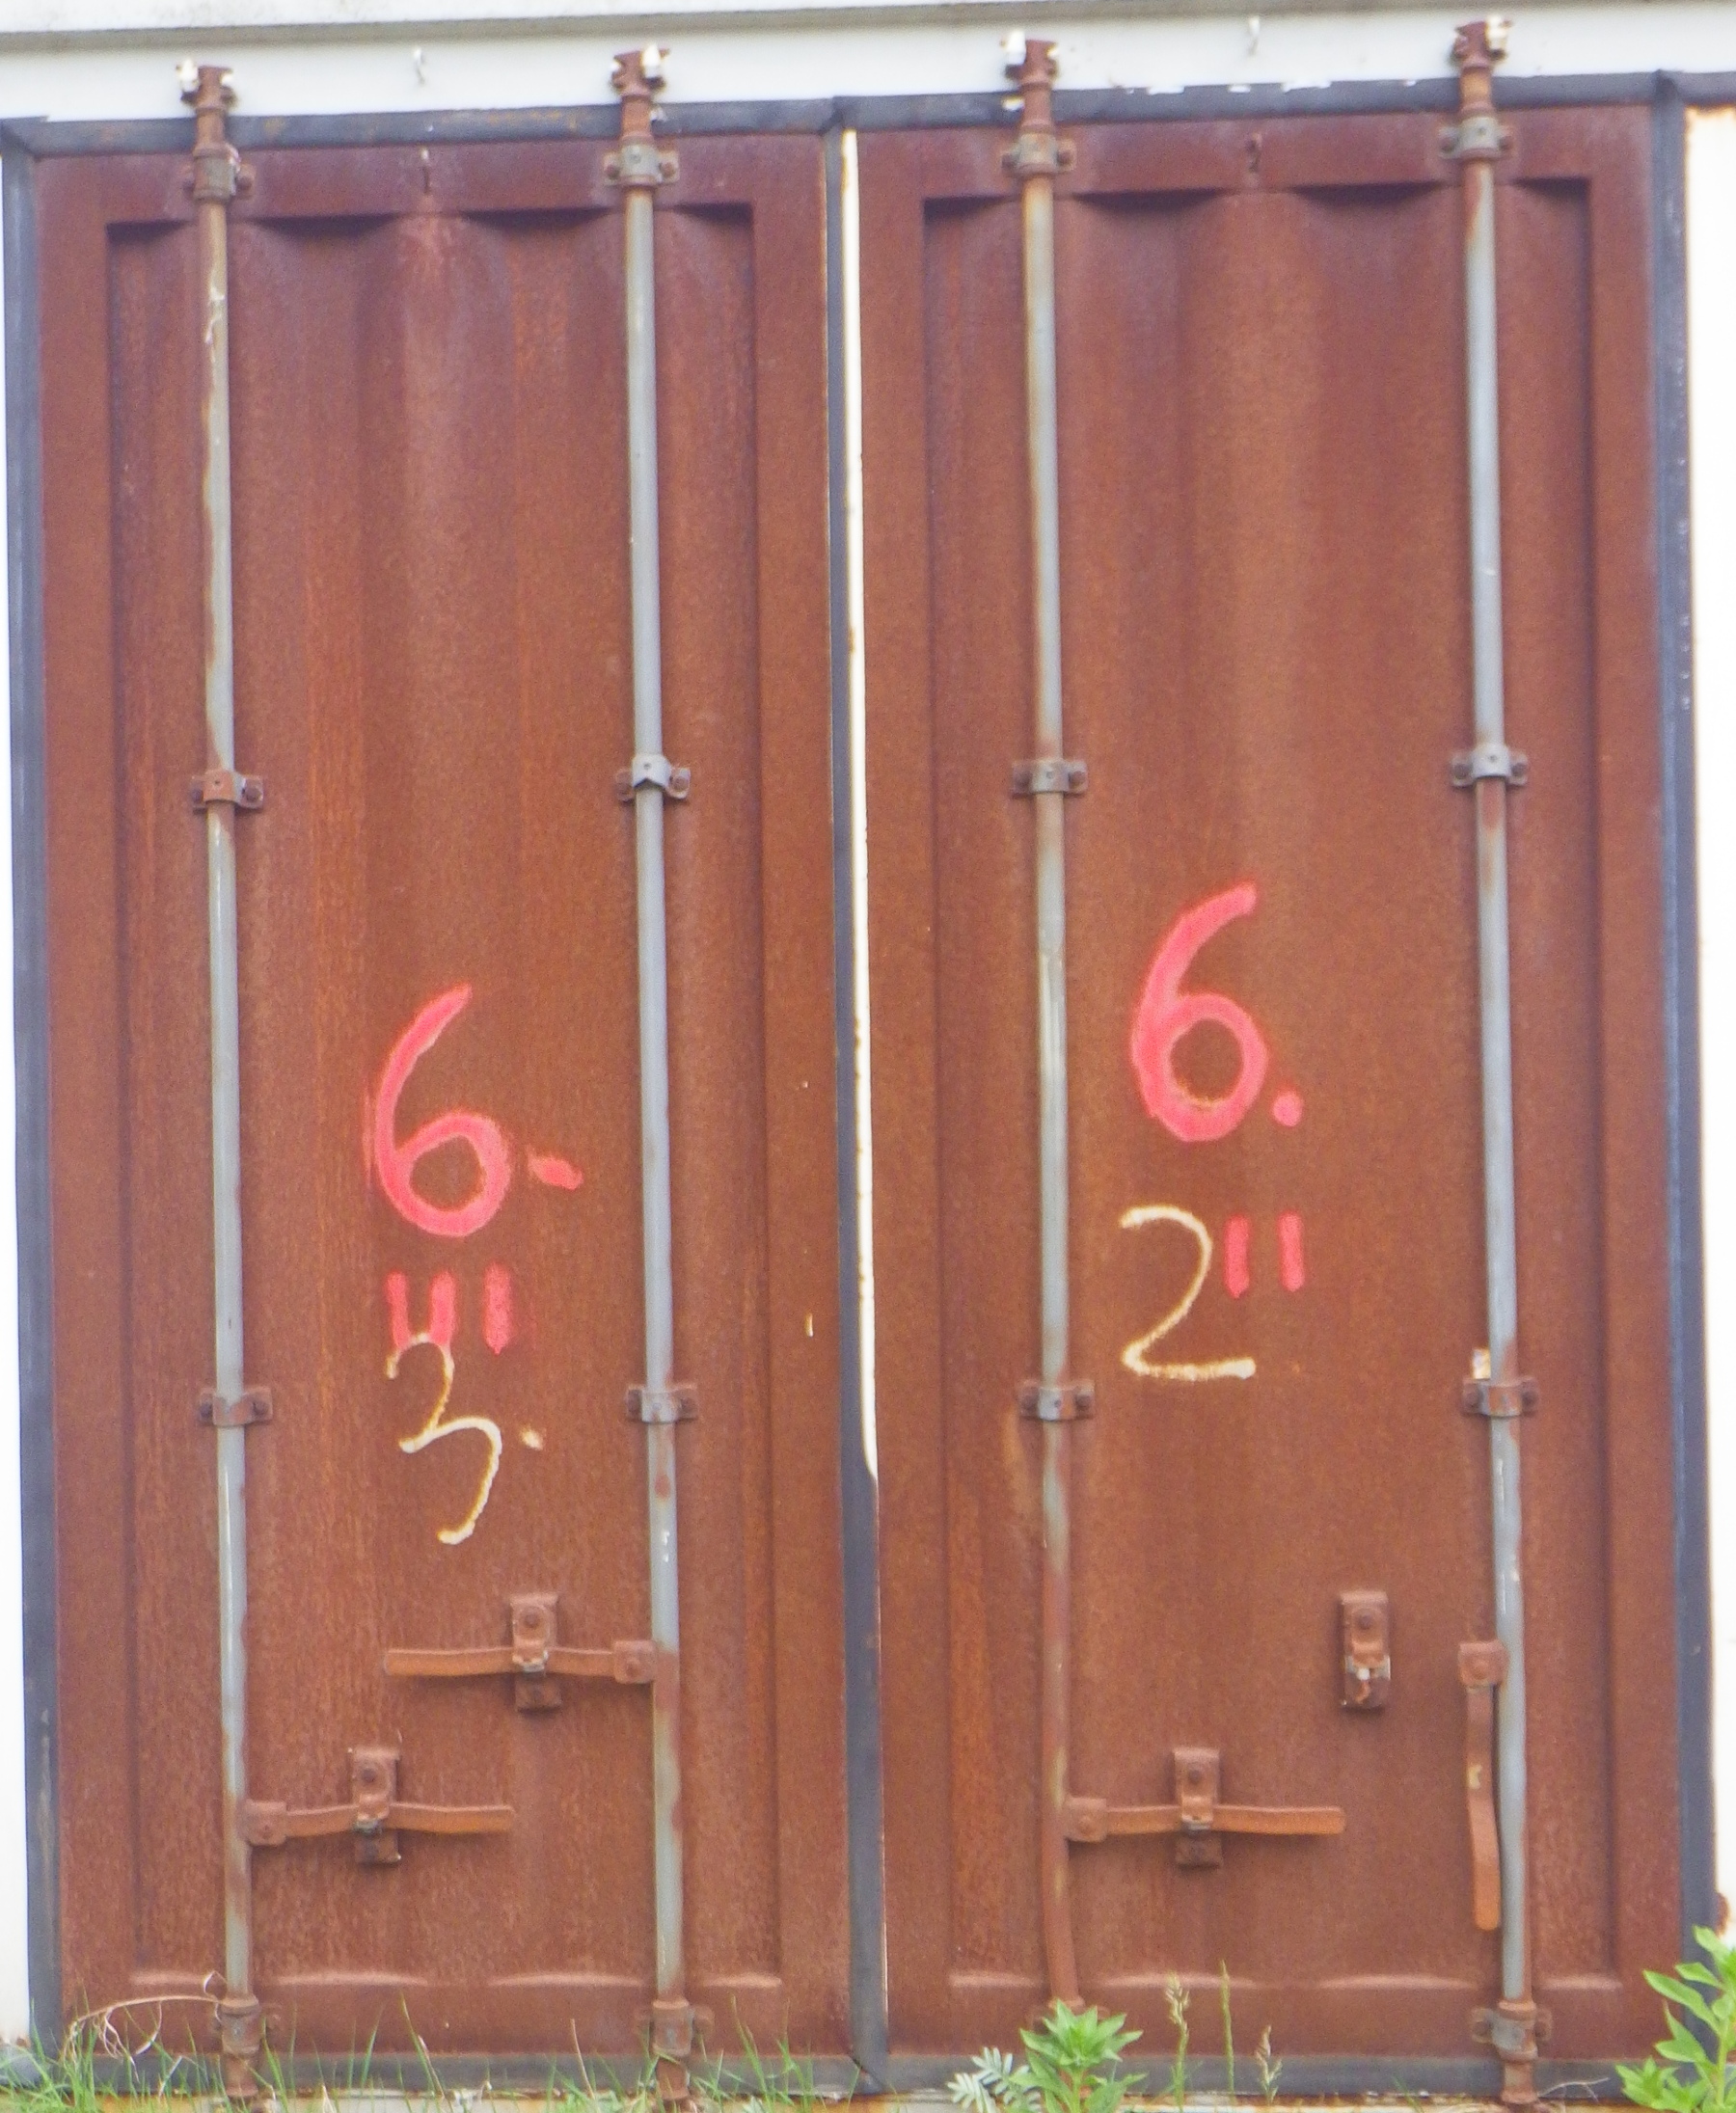 6.
"'
3.
6.
2"